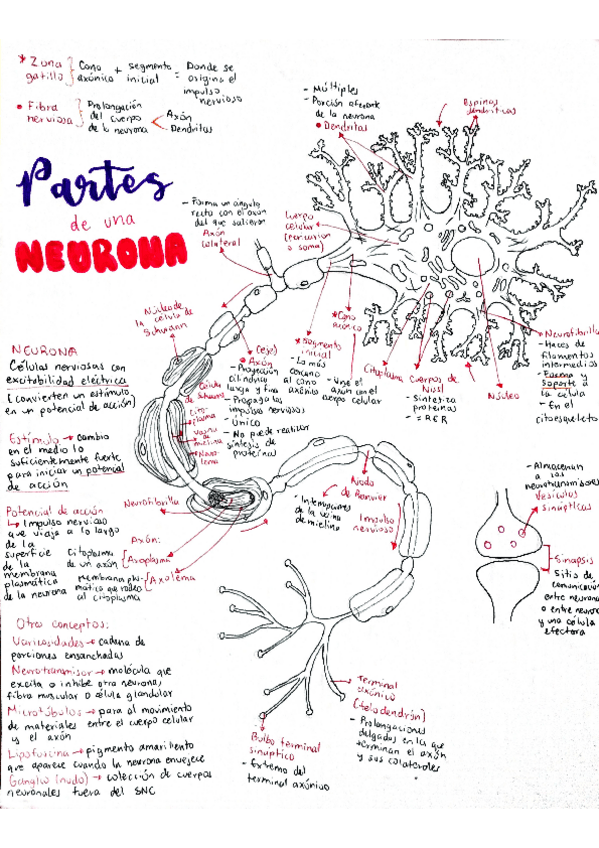 * Zona gatillo } Cono axónico + segmento inicial = Donde se origina el impulso nervioso
• Fibra nerviosa } Prolongación del cuerpo de la neurona < Axón
Dendritas
Partes
de una
NEURONA
- Múltiples
- Porción aferente
de la neurona
• Dendritas
Espinas
dendríticas
- Forma un ángulo
recto con el axón
del que salieron
Axón
colateral
Cuerpo
celular
(pericarion
o soma)
Núcleo de
la célula de
Schwann
NEURONA
Células nerviosas con
excitabilidad eléctrica
(convierten un estímulo
en un potencial de acción)
Estímulo → Cambio
en el medio lo
suficientemente fuerte
para iniciar un potencial
de acción
Potencial de acción
↳ Impulso nervioso
que viaja a lo largo
de la
superficie
de la
membrana
plasmática
de la neurona
• (eje)
Axón
- Proyección
cilíndrica
larga y fina
- Propaga
impulsos nerviosos
- Único
- No puede realizar
síntesis de
proteínas
* Segmento
inicial
- La más
cercano
al cono
axónico
* Cono
axónico
- Une el
axón con el
cuerpo celular
Citoplasma
Cuerpos de
Nissl
- Sintetiza
proteínas
= RER
Núcleo
• Neurofibrilla
- Haces de
filamentos
intermedios
- Forma y
soporte a
la célula
- En el
citoesqueleto
Célula
de Schwann
Cito-
plasma
Vaina
de
mielina
Neurofibrilla
Axón:
Citoplasma
de un axón } Axoplasma
Membrana plas-
mática que rodea
al citoplasma } Axolema
Nodo
de Ranvier
- Interrupciones
de la vaina
de mielina
Impulso
nervioso
- Almacenan
a los
neurotransmisores
Vesículas
sinápticas
Sinapsis
Sitio de
comunicación
entre neuronas
o entre neurona
y una célula
efectora
Otros conceptos:
Varicosidades → cadena de
porciones ensanchadas
Neurotransmisor → molécula que
excita o inhibe otra neurona,
fibra muscular o célula glandular
Microtúbulos → para el movimiento
de materiales entre el cuerpo celular
y el axón
Lipofuscina → pigmento amarillento
que aparece cuando la neurona envejece
Ganglio (nudo) → colección de cuerpos
neuronales fuera del SNC
Terminal
axónico
(telodendrón)
- Prolongaciones
delgadas en la que
terminan el axón
y sus colaterales
Bulbo terminal
sináptico
- Extremo del
terminal axónico